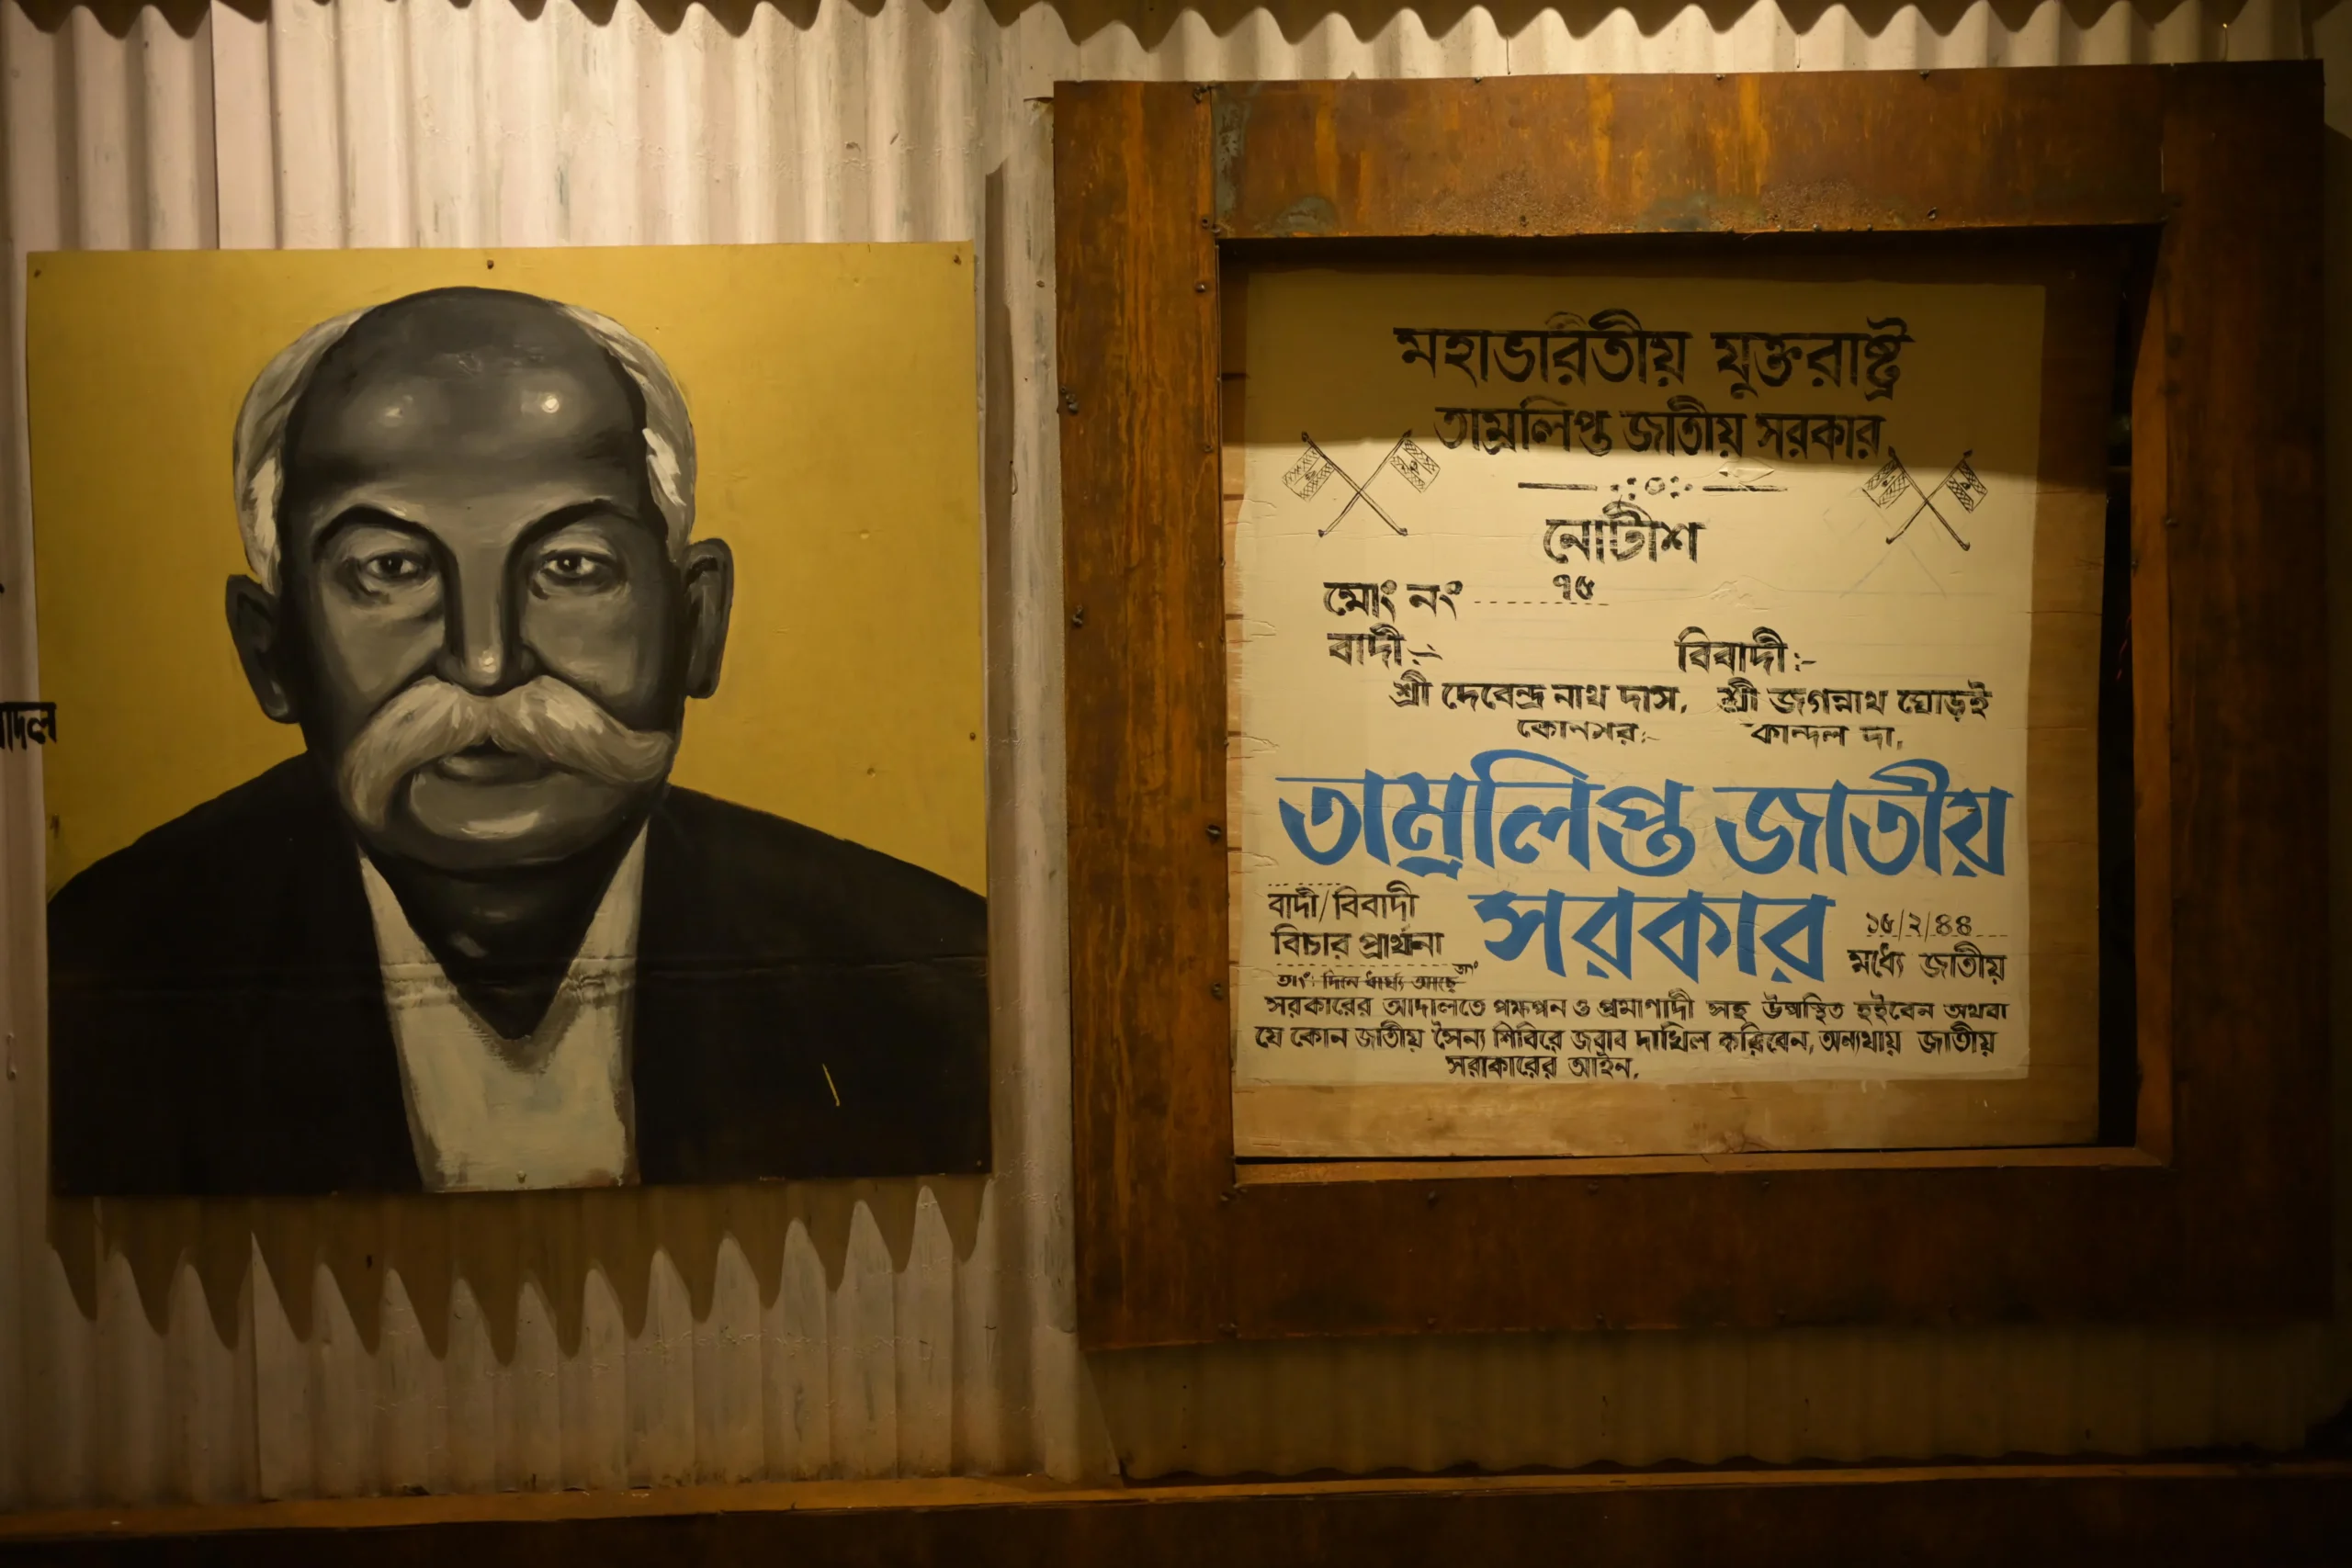 াদল
মহাভারতীয় যুক্তরাষ্ট্র
তাম্রলিপ্ত জাতীয় সরকার
নোটীশ
মোং নং ৭৫
বাদী:- বিবাদী:-
শ্রী দেবেন্দ্র নাথ দাস, শ্রী জগন্নাথ ঘোড়ই
কান্দল দা,
তাম্রলিপ্ত জাতীয়
সরকার
বাদী/বিবাদী
বিচার প্রার্থনা
১৫/২/৪৪
মধ্যে জাতীয়
তাং: দিনে ধার্য্য আছে
সরকারের আদালতে পক্ষগন ও প্রমাণাদী সহ উপস্থিত হইবেন অথবা
যে কোন জাতীয় সৈন্য শিবিরে জবাব দাখিল করিবেন, অন্যথায় জাতীয়
সরাকারের আইন,